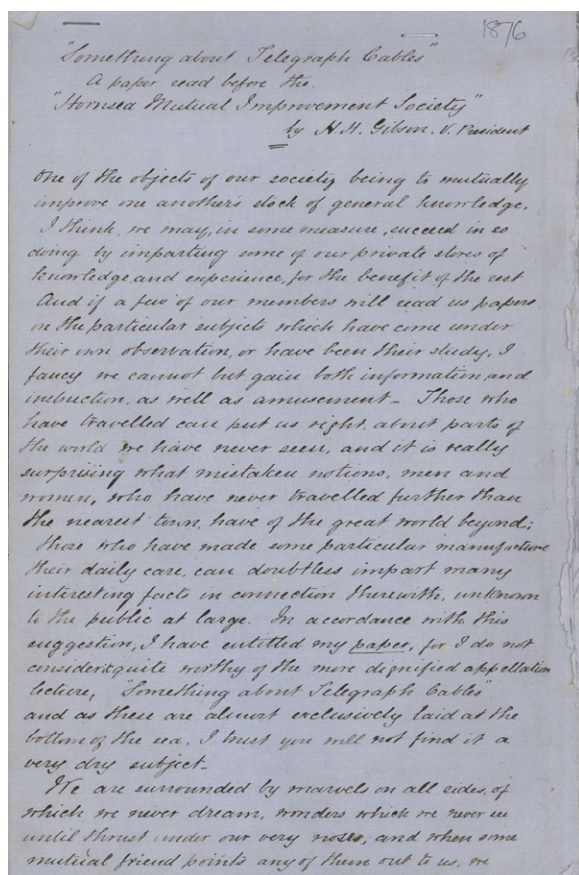 1876
"Something about Telegraph Cables"
A paper read before the
"Hornsea Mutual Improvement Society"
by H. H. Gibson. V. President
One of the objects of our society being to mutually
improve one another's stock of general knowledge.
I think, we may, in some measure, succeed in so
doing by imparting some of our private stores of
knowledge and experience, for the benefit of the rest
And if a few of our members will read us papers
on the particular subjects which have come under
their own observation, or have been their study, I
fancy we cannot but gain both information, and
instruction, as well as amusement – Those who
have travelled can put us right, about parts of
the world we have never seen, and it is really
surprising what mistaken notions, men and
women, who have never travelled further than
the nearest town, have of the great world beyond;
those who have made some particular manufacture
their daily care, can doubtless impart many
interesting facts in connection therewith, unknown
to the public at large. In accordance with this
suggestion, I have entitled my paper, for I do not
consider it quite worthy of the more dignified appellation
lecture, "Something about Telegraph Cables"
and as these are almost exclusively laid at the
bottom of the sea. I trust you will not find it a
very dry subject –
We are surrounded by marvels on all sides, of
which we never dream, wonders which we never see
until thrust under our very noses, and when some
mutual friend points any of them out to us, we